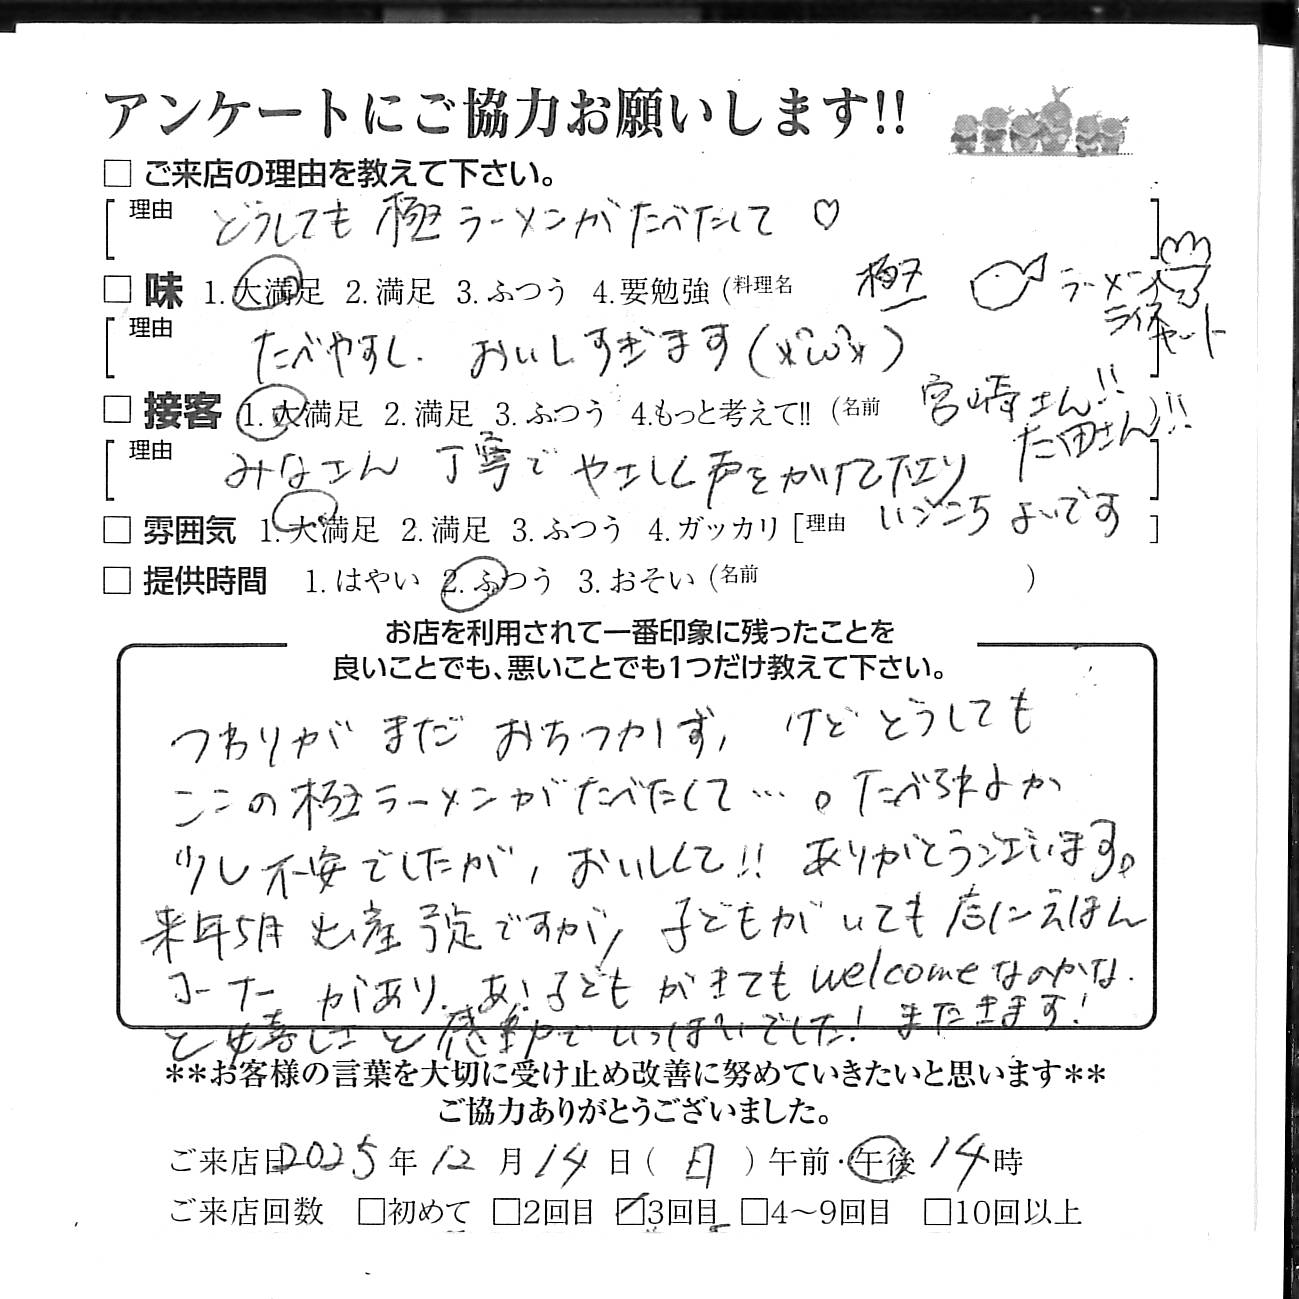 アンケートにご協力お願いします!!
□ ご来店の理由を教えて下さい。
[理由 どうしても 極ラーメンがたべたくて ♡ ]
□ 味 1.大満足 2.満足 3.ふつう 4.要勉強 (料理名 極 ラーメン
ライス セット
[理由 たべやすし、おいしすぎます(x^ω^x) ]
□ 接客 1.大満足 2.満足 3.ふつう 4.もっと考えて!! (名前 宮崎さん!!
た田さん)!!
[理由 みなさん 丁寧で やさしく声をかけて下さり ]
□ 雰囲気 1.大満足 2.満足 3.ふつう 4.ガッカリ [理由 いごこちよいです ]
□ 提供時間 1.はやい 2.ふつう 3.おそい (名前 )
お店を利用されて一番印象に残ったことを
良いことでも、悪いことでも1つだけ教えて下さい。
つわりが まだ おちつかず, けど どうしても
ここの極ラーメンがたべたくて…。たべれるか
少し不安でしたが, おいしくて!! ありがとうございます。
来年5月 出産予定ですが, 子どもがいても 店にえほん
コーナーがあり、あ!子どもがきても welcomeなのかな.
と嬉しさと感動でいっぱいでした! またきます!
**お客様の言葉を大切に受け止め改善に努めていきたいと思います**
ご協力ありがとうございました。
ご来店日 2025 年 12 月 14 日 ( 日 ) 午前・午後 14 時
ご来店回数 □初めて □2回目 ☑3回目 □4〜9回目 □10回以上